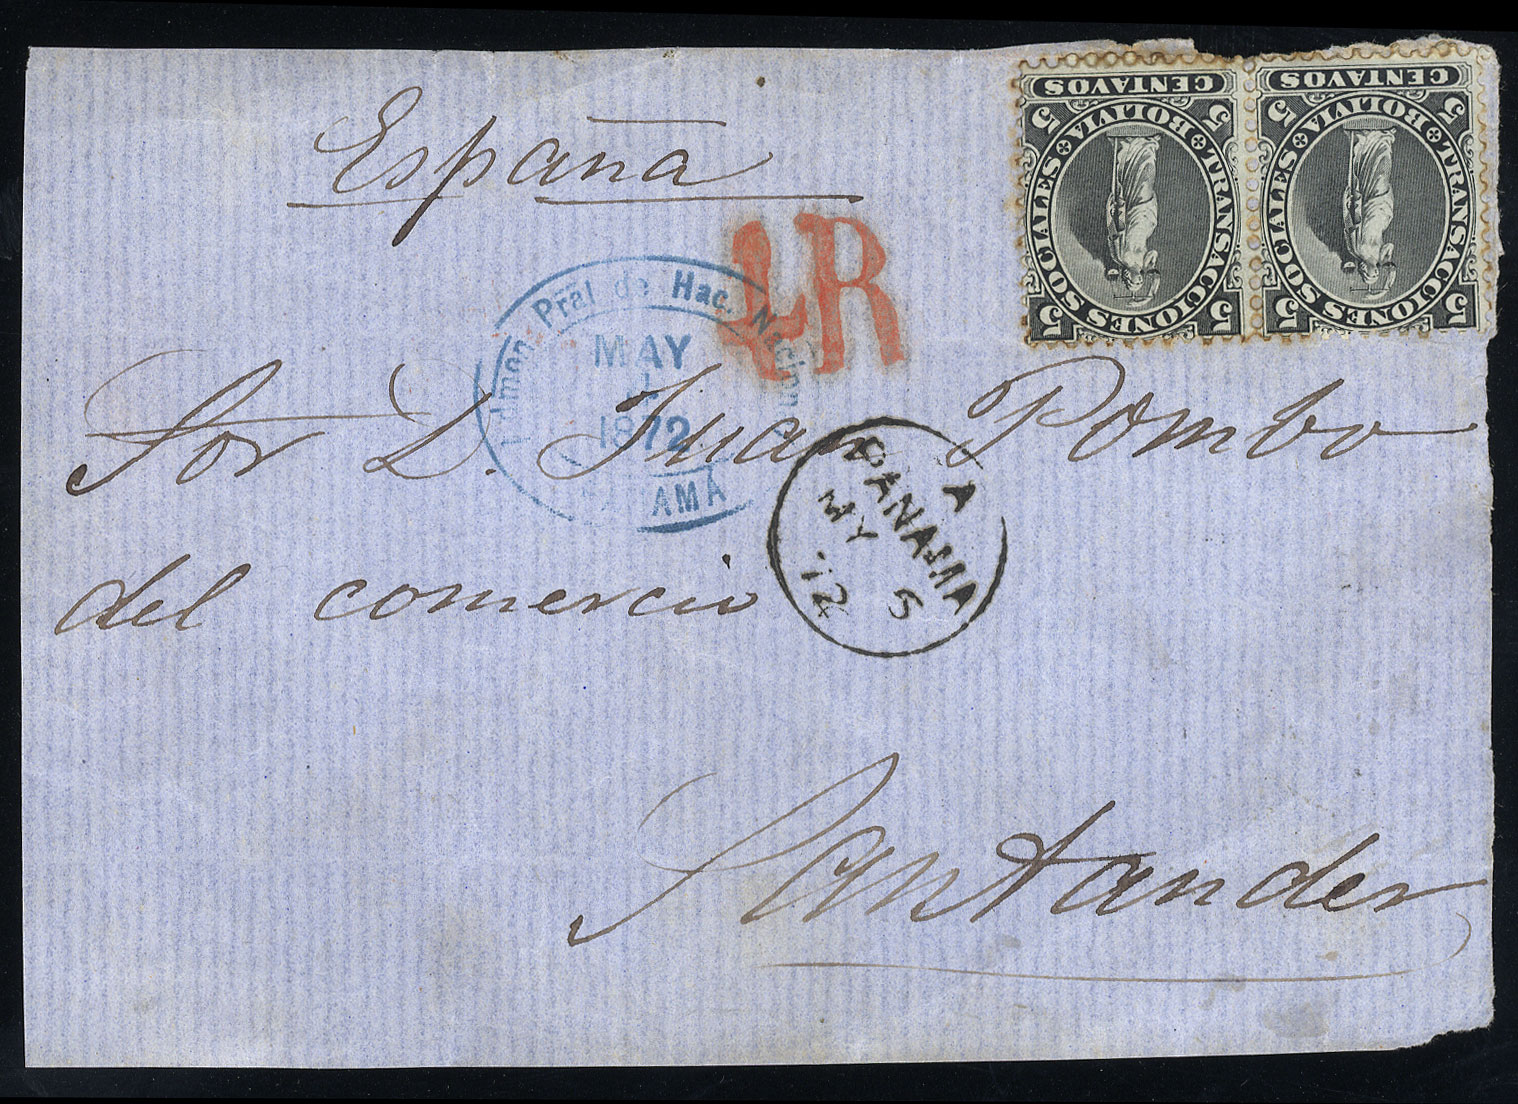 España
4R
CENTAVOS
5 BOLIVIA 5
TRANSACCIONES SOCIALES
5 5
CENTAVOS
5 BOLIVIA 5
TRANSACCIONES SOCIALES
5 5
Pral de Hac. Nacional
MAY
1872
Sor D. Juan Pombo
A
PANAMA
MY 5
72
del comercio
Santander